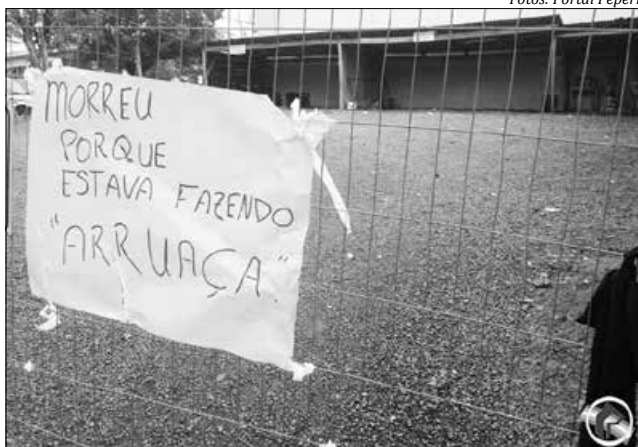 Fotos: Portal Peperi
MORREU
PORQUE
ESTAVA FAZENDO
"ARRUAÇA"